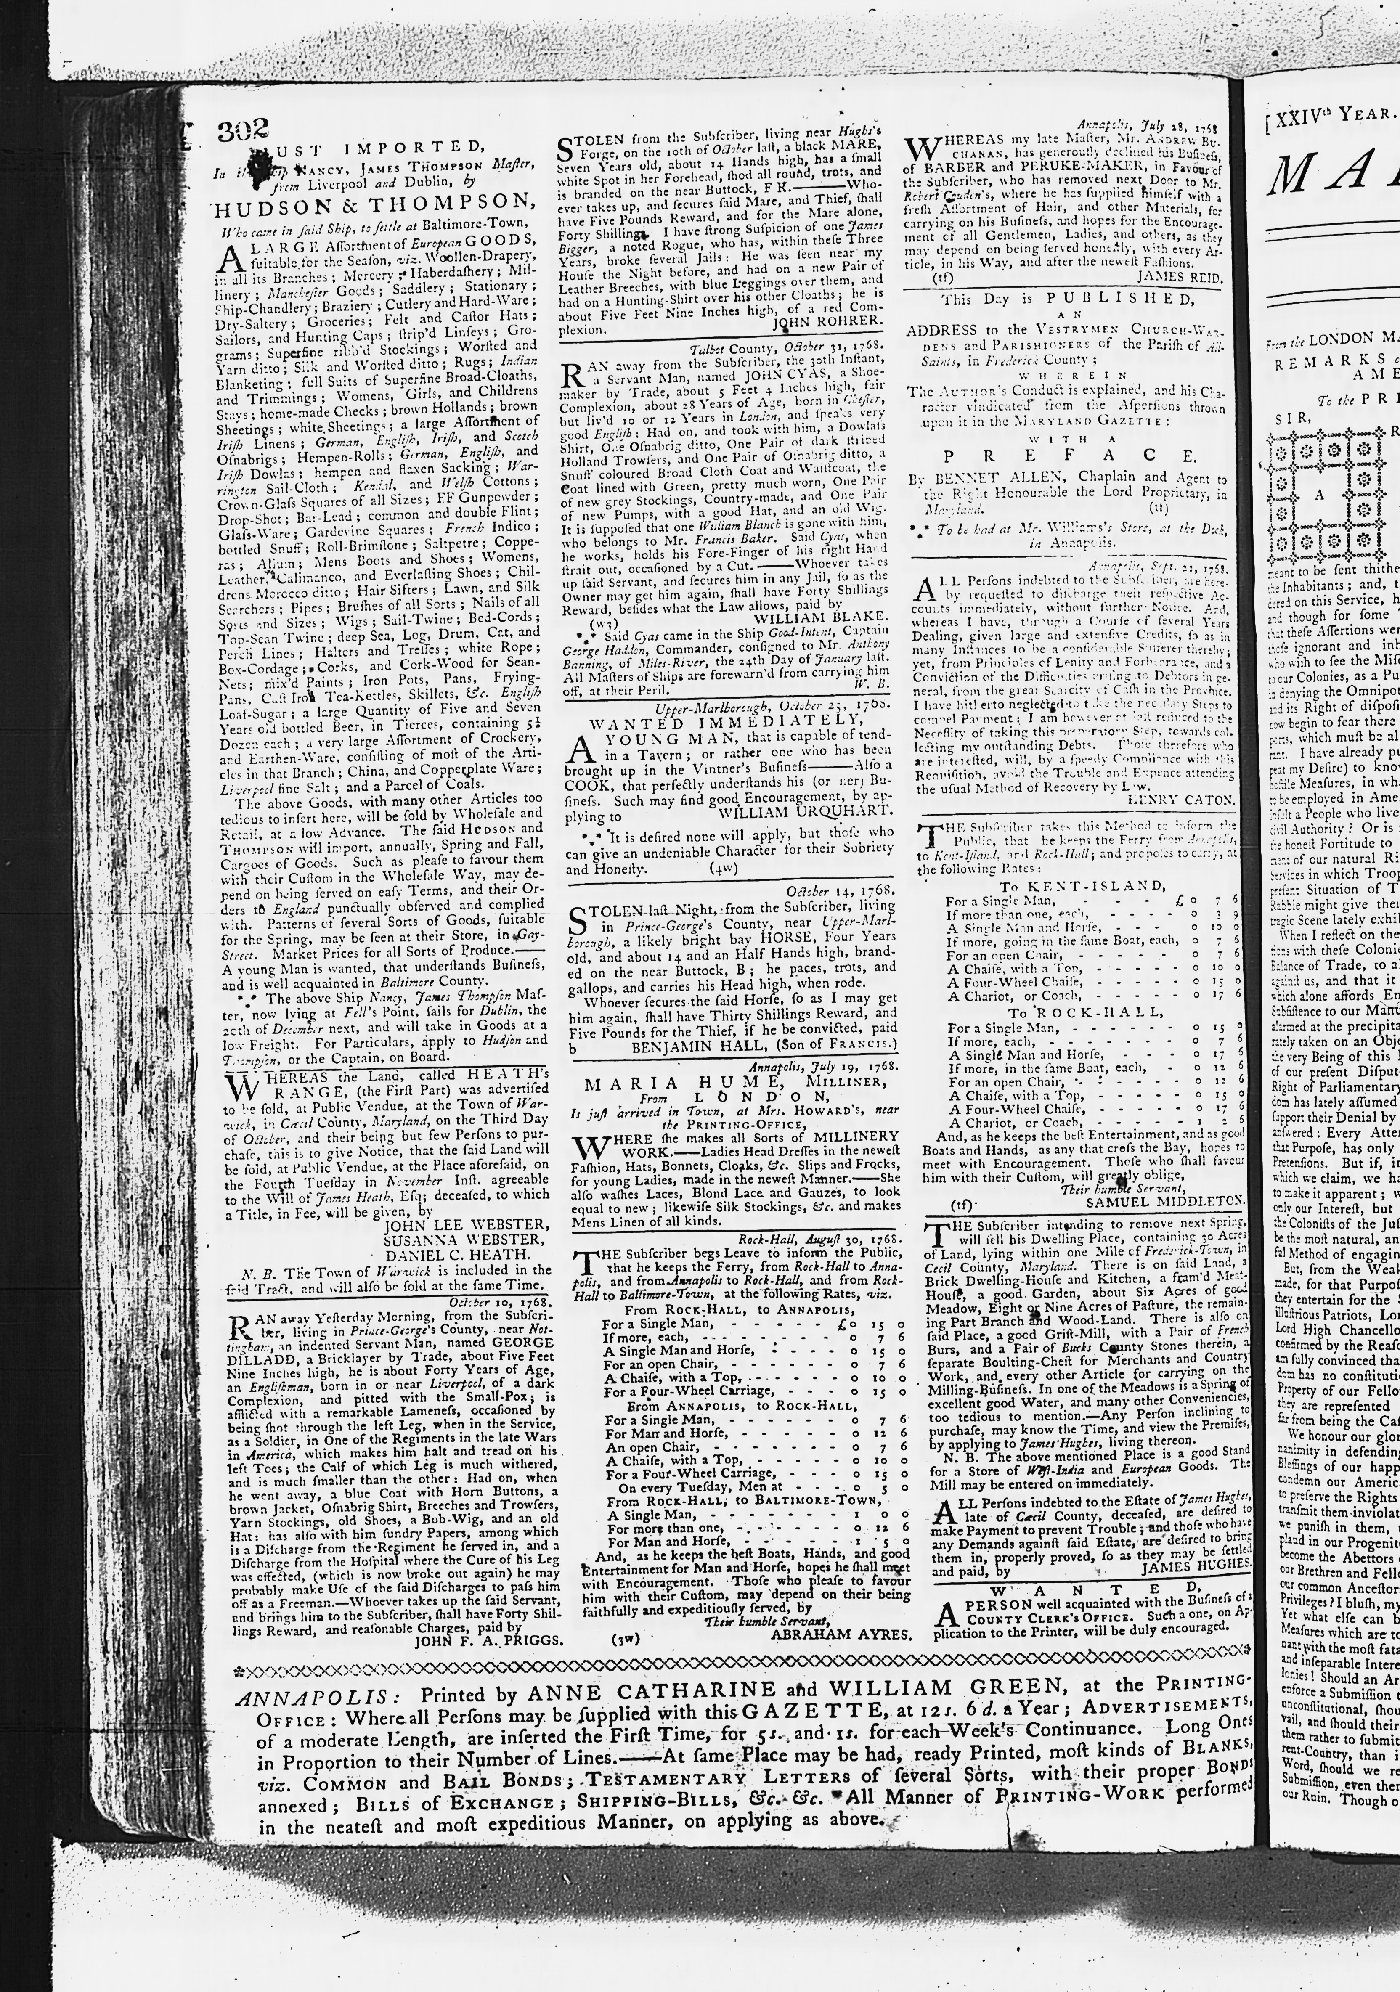 302
JUST IMPORTED,
In the Ship NANCY, JAMES THOMPSON Master,
from Liverpool and Dublin, by
HUDSON & THOMPSON,
Who came in said Ship, to settle at Baltimore-Town,
A LARGE Assortment of European GOODS,
suitable for the Season, viz. Woollen-Drapery,
in all its Branches; Mercery; Haberdashery; Mil-
linery; Manchester Goods; Saddlery; Stationary;
Ship-Chandlery; Braziery; Cutlery and Hard-Ware;
Dry-Saltery; Groceries; Felt and Castor Hats;
Sailors, and Hunting Caps; strip'd Linseys; Gro-
grams; Superfine ribb'd Stockings; Worsted and
Yarn ditto; Silk and Worsted ditto; Rugs; Indian
Blanketing; full Suits of Superfine Broad-Cloaths,
and Trimmings; Womens, Girls, and Childrens
Stays; home-made Checks; brown Hollands; brown
Sheetings; white Sheetings; a large Assortment of
Irish Linens; German, English, Irish, and Scotch
Osnabrigs; Hempen-Rolls; German, English, and
Irish Dowlas; hempen and flaxen Sacking; War-
rington Sail-Cloth; Kendal, and Welsh Cottons;
Crown-Glass Squares of all Sizes; FF Gunpowder;
Drop-Shot; Bar-Lead; common and double Flint;
Glass-Ware; Gardevine Squares; French Indico;
bottled Snuff; Roll-Brimstone; Saltpetre; Coppe-
ras; Allum; Mens Boots and Shoes; Womens,
Leather, Calimanco, and Everlasting Shoes; Chil-
drens Morocco ditto; Hair Sifters; Lawn, and Silk
Searchers; Pipes; Brushes of all Sorts; Nails of all
Sorts and Sizes; Wigs; Sail-Twine; Bed-Cords;
Top-Scan Twine; deep Sea, Log, Drum, Cat, and
Perch Lines; Halters and Tresses; white Rope;
Box-Cordage; Corks, and Cork-Wood for Sean-
Nets; mix'd Paints; Iron Pots, Pans, Frying-
Pans, Cast Iron Tea-Kettles, Skillets, &c. English
Loaf-Sugar; a large Quantity of Five and Seven
Years old bottled Beer, in Tierces, containing 5½
Dozen each; a very large Assortment of Crockery,
and Earthen-Ware, consisting of most of the Arti-
cles in that Branch; China, and Copperplate Ware;
Liverpool fine Salt; and a Parcel of Coals.
The above Goods, with many other Articles too
tedious to insert here, will be sold by Wholesale and
Retail, at a low Advance. The said HUDSON and
THOMPSON will import, annually, Spring and Fall,
Cargoes of Goods. Such as please to favour them
with their Custom in the Wholesale Way, may de-
pend on being served on easy Terms, and their Or-
ders to England punctually observed and complied
with. Patterns of several Sorts of Goods, suitable
for the Spring, may be seen at their Store, in Gay-
Street. Market Prices for all Sorts of Produce.——
A young Man is wanted, that understands Business,
and is well acquainted in Baltimore County.
*** The above Ship Nancy, James Thompson Mas-
ter, now lying at Fell's Point, sails for Dublin, the
20th of December next, and will take in Goods at a
low Freight. For Particulars, apply to Hudson and
Thompson, or the Captain, on Board.
WHEREAS the Land, called HEATH's
RANGE, (the First Part) was advertised
to be sold, at Public Vendue, at the Town of War-
wick, in Cæcil County, Maryland, on the Third Day
of October, and their being but few Persons to pur-
chase, this is to give Notice, that the said Land will
be sold, at Public Vendue, at the Place aforesaid, on
the Fourth Tuesday in November Inst. agreeable
to the Will of James Heath, Esq; deceased, to which
a Title, in Fee, will be given, by
JOHN LEE WEBSTER,
SUSANNA WEBSTER,
DANIEL C. HEATH.
N. B. The Town of Warwick is included in the
said Tract, and will also be sold at the same Time.
October 10, 1768.
RAN away Yesterday Morning, from the Subscri-
ber, living in Prince-George's County, near Not-
tingham, an indented Servant Man, named GEORGE
DILLADD, a Bricklayer by Trade, about Five Feet
Nine Inches high, he is about Forty Years of Age,
an Englishman, born in or near Liverpool, of a dark
Complexion, and pitted with the Small-Pox; is
afflicted with a remarkable Lameness, occasioned by
being shot through the left Leg, when in the Service,
as a Soldier, in One of the Regiments in the late Wars
in America, which makes him halt and tread on his
left Toes; the Calf of which Leg is much withered,
and is much smaller than the other: Had on, when
he went away, a blue Coat with Horn Buttons, a
brown Jacket, Osnabrig Shirt, Breeches and Trowsers,
Yarn Stockings, old Shoes, a Bob-Wig, and an old
Hat: has also with him sundry Papers, among which
is a Discharge from the Regiment he served in, and a
Discharge from the Hospital where the Cure of his Leg
was effected, (which is now broke out again) he may
probably make Use of the said Discharges to pass him
off as a Freeman.—Whoever takes up the said Servant,
and brings him to the Subscriber, shall have Forty Shil-
lings Reward, and reasonable Charges, paid by
JOHN F. A. PRIGGS.
STOLEN from the Subscriber, living near Hughs's
Forge, on the 10th of October last, a black MARE,
Seven Years old, about 14 Hands high, has a small
white Spot in her Forehead, shod all round, trots, and
is branded on the near Buttock, F R.——Who-
ever takes up, and secures said Mare, and Thief, shall
have Five Pounds Reward, and for the Mare alone,
Forty Shillings. I have strong Suspicion of one James
Bigger, a noted Rogue, who has, within these Three
Years, broke several Jails: He was seen near my
House the Night before, and had on a new Pair of
Leather Breeches, with blue Leggings over them, and
had on a Hunting-Shirt over his other Cloaths; he is
about Five Feet Nine Inches high, of a red Com-
plexion.
JOHN ROHRER.
Talbot County, October 31, 1768.
RAN away from the Subscriber, the 30th Instant,
a Servant Man, named JOHN CYAS, a Shoe-
maker by Trade, about 5 Feet 4 Inches high, fair
Complexion, about 28 Years of Age, born in Chester,
but liv'd 10 or 12 Years in London, and speaks very
good English: Had on, and took with him, a Dowlass
Shirt, One Osnabrig ditto, One Pair of dark striped
Holland Trowsers, and One Pair of Osnabrig ditto, a
Snuff coloured Broad Cloth Coat and Waistcoat, the
Coat lined with Green, pretty much worn, One Pair
of new grey Stockings, Country-made, and One Pair
of new Pumps, with a good Hat, and an old Wig.
It is supposed that one William Blanch is gone with him,
who belongs to Mr. Francis Baker. Said Cyas, when
he works, holds his Fore-Finger of his right Hand
strait out, occasioned by a Cut.——Whoever takes
up said Servant, and secures him in any Jail, so as the
Owner may get him again, shall have Forty Shillings
Reward, besides what the Law allows, paid by
(w3) WILLIAM BLAKE.
*** Said Cyas came in the Ship Good-Intent, Captain
George Haddon, Commander, consigned to Mr. Anthony
Banning, of Miles-River, the 24th Day of January last.
All Masters of Ships are forewarn'd from carrying him
off, at their Peril. W. B.
Upper-Marlborough, October 25, 1768.
WANTED IMMEDIATELY,
A YOUNG MAN, that is capable of tend-
in a Tavern; or rather one who has been
brought up in the Vintner's Business——Also a
COOK, that perfectly understands his (or her) Bu-
siness. Such may find good Encouragement, by ap-
plying to WILLIAM URQUHART.
*** It is desired none will apply, but those who
can give an undeniable Character for their Sobriety
and Honesty. (4w)
October 14, 1768.
STOLEN last Night, from the Subscriber, living
in Prince-George's County, near Upper-Marl-
borough, a likely bright bay HORSE, Four Years
old, and about 14 and an Half Hands high, brand-
ed on the near Buttock, B; he paces, trots, and
gallops, and carries his Head high, when rode.
Whoever secures the said Horse, so as I may get
him again, shall have Thirty Shillings Reward, and
Five Pounds for the Thief, if he be convicted, paid
b BENJAMIN HALL, (Son of FRANCIS.)
Annapolis, July 19, 1768.
MARIA HUME, MILLINER,
From LONDON,
Is just arrived in Town, at Mrs. HOWARD's, near
the PRINTING-OFFICE,
WHERE she makes all Sorts of MILLINERY
WORK.——Ladies Head Dresses in the newest
Fashion, Hats, Bonnets, Cloaks, &c. Slips and Frocks,
for young Ladies, made in the newest Manner.——She
also washes Laces, Blond Lace and Gauzes, to look
equal to new; likewise Silk Stockings, &c. and makes
Mens Linen of all kinds.
Rock-Hall, August 30, 1768.
THE Subscriber begs Leave to inform the Public,
that he keeps the Ferry, from Rock-Hall to Anna-
polis, and from Annapolis to Rock-Hall, and from Rock-
Hall to Baltimore-Town, at the following Rates, viz.
From ROCK-HALL, to ANNAPOLIS,
For a Single Man, - - - - - £0 15 0
If more, each, - - - - - 0 7 6
A Single Man and Horse, - - - - 0 15 0
For an open Chair, - - - - - 0 7 6
A Chaise, with a Top, - - - - - 0 10 0
For a Four-Wheel Carriage, - - - 0 15 0
From ANNAPOLIS, to ROCK-HALL,
For a Single Man, - - - - - 0 7 6
For Man and Horse, - - - - - 0 12 6
An open Chair, - - - - - 0 7 6
A Chaise, with a Top, - - - - - 0 10 0
For a Four-Wheel Carriage, - - - 0 15 0
On every Tuesday, Men at - - - 0 5 0
From ROCK-HALL, to BALTIMORE-TOWN,
A Single Man, - - - - - 1 0 0
For more than one, - - - - - 0 12 6
For Man and Horse, - - - - - 1 5 0
And, as he keeps the best Boats, Hands, and good
Entertainment for Man and Horse, hopes he shall meet
with Encouragement. Those who please to favour
him with their Custom, may depend on their being
faithfully and expeditiously served, by
Their humble Servant,
(3w) ABRAHAM AYRES.
Annapolis, July 28, 1768
WHEREAS my late Master, Mr. ANDREW BU-
CHANAN, has generously declined his Business,
of BARBER and PERUKE-MAKER, in Favour of
the Subscriber, who has removed next Door to Mr.
Robert Couden's, where he has supplied himself with a
fresh Assortment of Hair, and other Materials, for
carrying on his Business, and hopes for the Encourage-
ment of all Gentlemen, Ladies, and others, as they
may depend on being served honestly, with every Ar-
ticle, in his Way, and after the newest Fashions.
(tf) JAMES REID.
This Day is PUBLISHED,
AN
ADDRESS to the VESTRYMEN CHURCH-WAR-
DENS and PARISHIONERS of the Parish of All-
Saints, in Frederick County;
WHEREIN
The AUTHOR's Conduct is explained, and his Cha-
racter vindicated from the Aspersions thrown
upon it in the MARYLAND GAZETTE:
WITH A
PREFACE,
By BENNET ALLEN, Chaplain and Agent to
the Right Honourable the Lord Proprietary, in
Maryland. (tf)
*** To be had at Mr. Williams's Store, at the Dock,
in Annapolis.
Annapolis, Sept. 21, 1768.
ALL Persons indebted to the Subscriber, are here-
by requested to discharge their respective Ac-
counts immediately, without further Notice. And,
whereas I have, through a Course of several Years
Dealing, given large and extensive Credits, so as in
many Instances to be a considerable Sufferer thereby;
yet, from Principles of Lenity and Forbearance, and a
Conviction of the Difficulties arising to Debtors in ge-
neral, from the great Scarcity of Cash in the Province,
I have hitherto neglected to take the necessary Steps to
compel Payment; I am however at last reduced to the
Necessity of taking this preparatory Step, towards col-
lecting my outstanding Debts. Those therefore who
are interested, will, by a speedy Compliance with this
Requisition, avoid the Trouble and Expence attending
the usual Method of Recovery by Law.
HENRY CATON.
THE Subscriber takes this Method to inform the
Public, that he keeps the Ferry from Annapolis,
to Kent-Island, and Rock-Hall; and proposes to carry, at
the following Rates:
To KENT-ISLAND,
For a Single Man, - - - £0 7 6
If more than one, each, - - - 0 3 9
A Single Man and Horse, - - - 0 10 0
If more, going in the same Boat, each, - 0 7 6
For an open Chair, - - - - - 0 7 6
A Chaise, with a Top, - - - - 0 10 0
A Four-Wheel Chaise, - - - - 0 15 0
A Chariot, or Coach, - - - - 0 17 6
To ROCK-HALL,
For a Single Man, - - - - - 0 15 0
If more, each, - - - - - 0 7 6
A Single Man and Horse, - - - 0 17 6
If more, in the same Boat, each, - 0 12 6
For an open Chair, - - - - 0 12 6
A Chaise, with a Top, - - - - 0 15 0
A Four-Wheel Chaise, - - - - 0 17 6
A Chariot, or Coach, - - - - 1 2 6
And, as he keeps the best Entertainment, and as good
Boats and Hands, as any that cross the Bay, hopes to
meet with Encouragement. Those who shall favour
him with their Custom, will greatly oblige,
Their humble Servant,
(tf) SAMUEL MIDDLETON.
THE Subscriber intending to remove next Spring,
will sell his Dwelling Place, containing 30 Acres
of Land, lying within one Mile of Frederick-Town, in
Cecil County, Maryland. There is on said Land, a
Brick Dwelling-House and Kitchen, a fram'd Meat-
House, a good Garden, about Six Acres of good
Meadow, Eight or Nine Acres of Pasture, the remain-
ing Part Branch and Wood-Land. There is also on
said Place, a good Grist-Mill, with a Pair of French
Burs, and a Pair of Bucks County Stones therein, a
separate Boulting-Chest for Merchants and Country
Work, and every other Article for carrying on the
Milling-Business. In one of the Meadows is a Spring of
excellent good Water, and many other Conveniencies,
too tedious to mention.—Any Person inclining to
purchase, may know the Time, and view the Premises,
by applying to James Hughes, living thereon.
N. B. The above mentioned Place is a good Stand
for a Store of West-India and European Goods. The
Mill may be entered on immediately.
ALL Persons indebted to the Estate of James Hughes,
late of Cæcil County, deceased, are desired to
make Payment to prevent Trouble; and those who have
any Demands against said Estate, are desired to bring
them in, properly proved, so as they may be settled
and paid, by JAMES HUGHES.
WANTED,
A PERSON well acquainted with the Business of a
COUNTY CLERK's OFFICE. Such a one, on Ap-
plication to the Printer, will be duly encouraged.
ANNAPOLIS: Printed by ANNE CATHARINE and WILLIAM GREEN, at the PRINTING-
OFFICE: Where all Persons may be supplied with this GAZETTE, at 12s. 6d. a Year; ADVERTISEMENTS,
of a moderate Length, are inserted the First Time, for 5s. and 1s. for each Week's Continuance. Long Ones
in Proportion to their Number of Lines.——At same Place may be had, ready Printed, most kinds of BLANKS,
viz. COMMON and BAIL BONDS; TESTAMENTARY LETTERS of several Sorts, with their proper BONDS
annexed; BILLS of EXCHANGE; SHIPPING-BILLS, &c. &c. All Manner of PRINTING-WORK performed
in the neatest and most expeditious Manner, on applying as above.
[XXIVth YEAR.
MA
From the LONDON
REMARKS
AME
To the PRI
SIR,
A